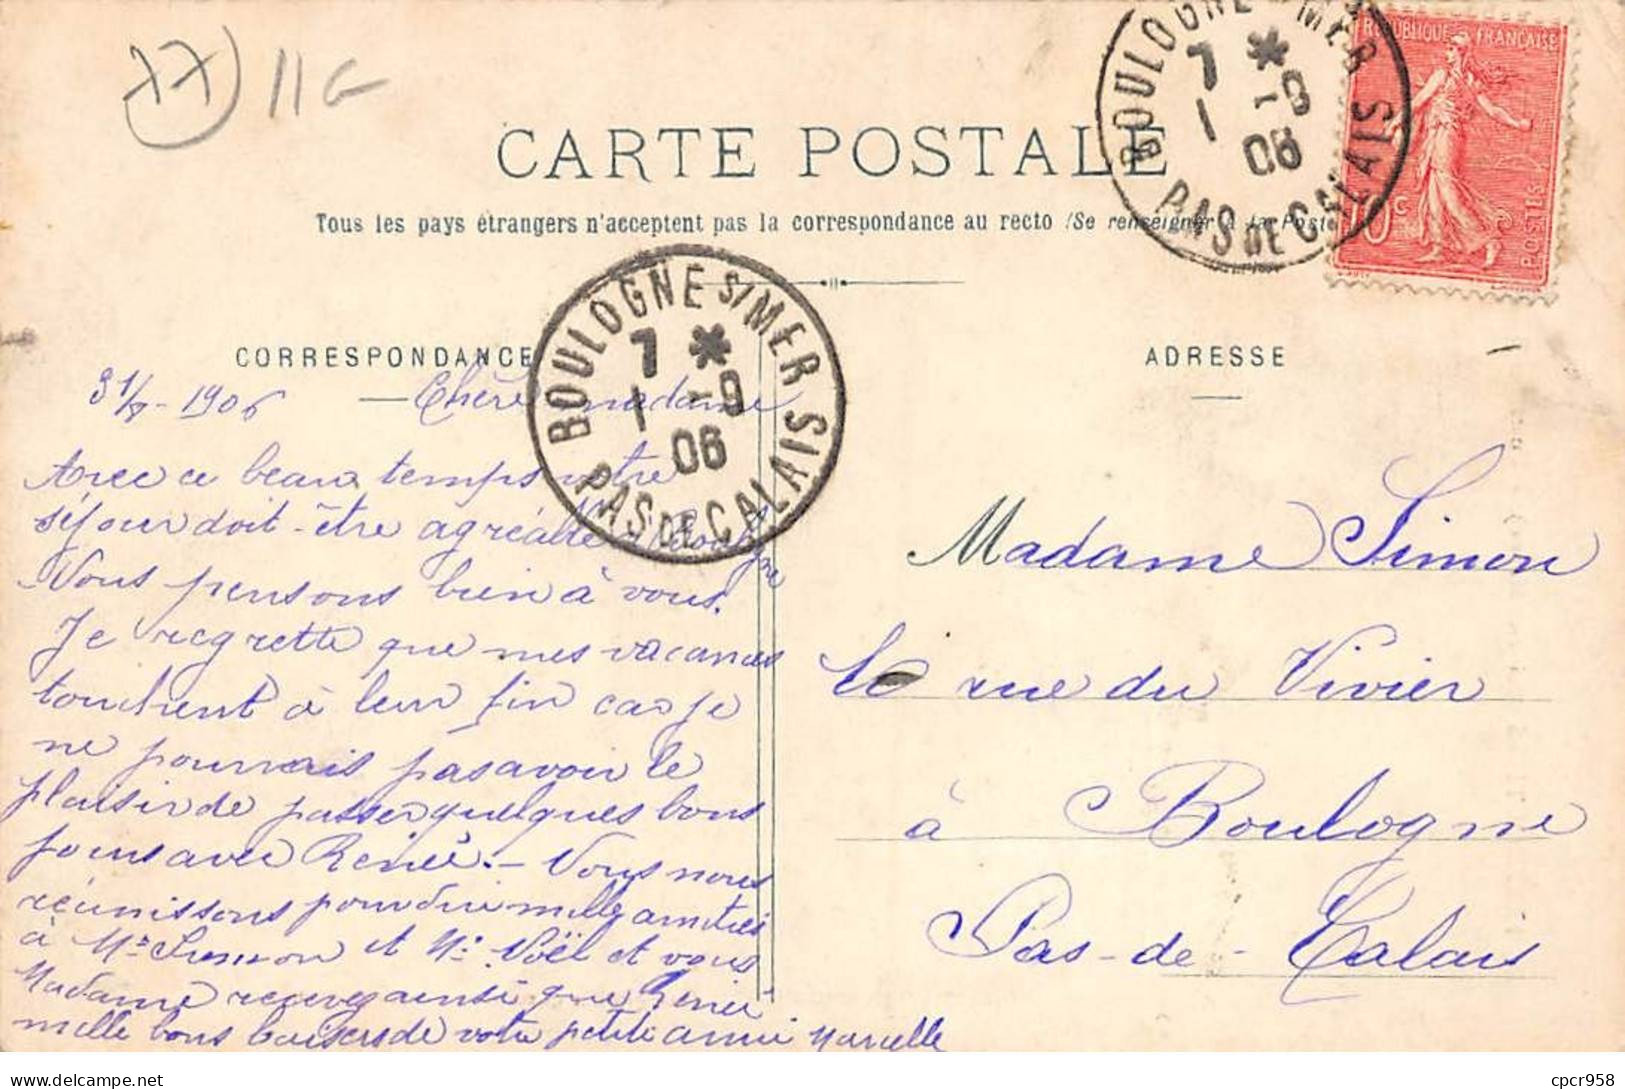 77 11G
CARTE POSTALE
Tous les pays étrangers n'acceptent pas la correspondance au recto (Se renseigner à la Poste
RÉPUBLIQUE FRANÇAISE
POSTES
10c
BOULOGNE S/MER
7 *
1 -9
06
PAS DE CALAIS
BOULOGNE S/MER
7 *
1 -9
06
PAS DE CALAIS
CORRESPONDANCE
31/8-1906 — Chère madame
Avec ce beau temps votre
séjour doit-être agréable à Boulogne
Vous pensons bien à vous.
Je regrette que mes vacances
touchent à leur fin car je
ne pourrais pas avoir le
plaisir de passer quelques bons
jours avec Renée. — Vous nous
réunissons pour dire mille amitiés
à Mr Simon et Mr Noël et vous
Madame recevez ainsi que Renée
mille bons baisers de votre petite amie Marcelle
ADRESSE
Madame Simon
rue du Vivier
à Boulogne
Pas-de-Calais
cpcr958